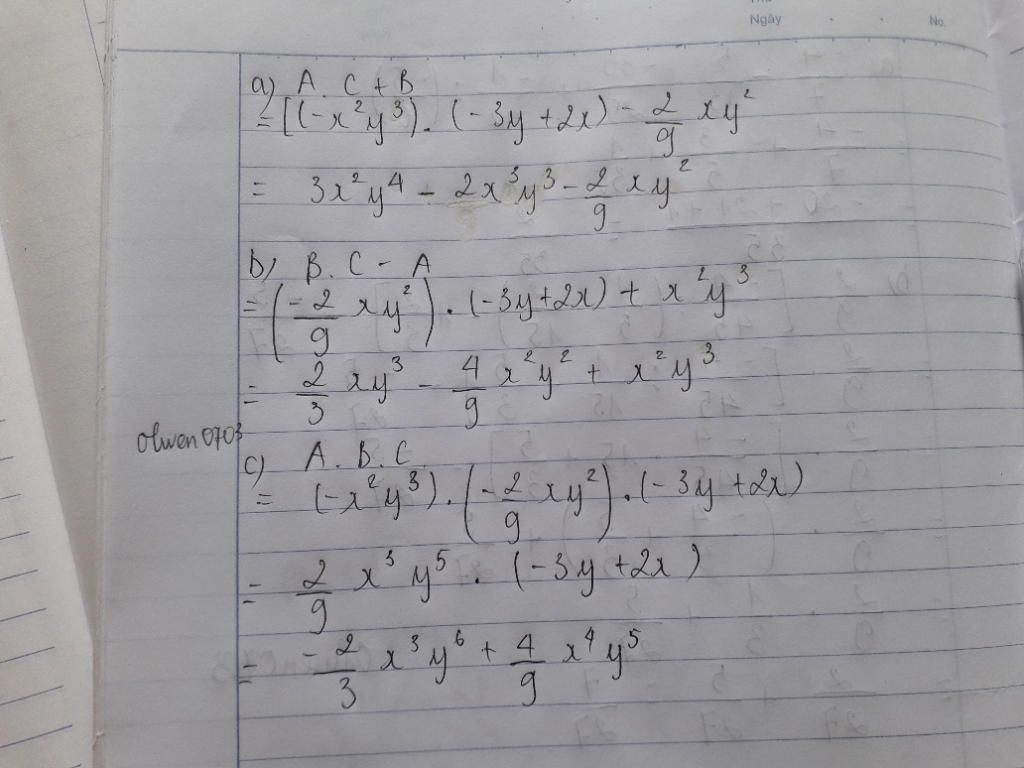 Ngày
No.
a) A. C + B
= [(-x²y³). (-3y + 2x) - 2/9 xy²
= 3x²y⁴ - 2x³y³ - 2/9 xy²
b) B. C - A
= (-2/9 xy²). (-3y+2x) + x²y³
= 2/3 xy³ - 4/9 x²y² + x²y³
Olwen0703
c) A. B. C
= (-x²y³). (-2/9 xy²). (-3y +2x)
= 2/9 x³y⁵. (-3y +2x)
= -2/3 x³y⁶ + 4/9 x⁴y⁵